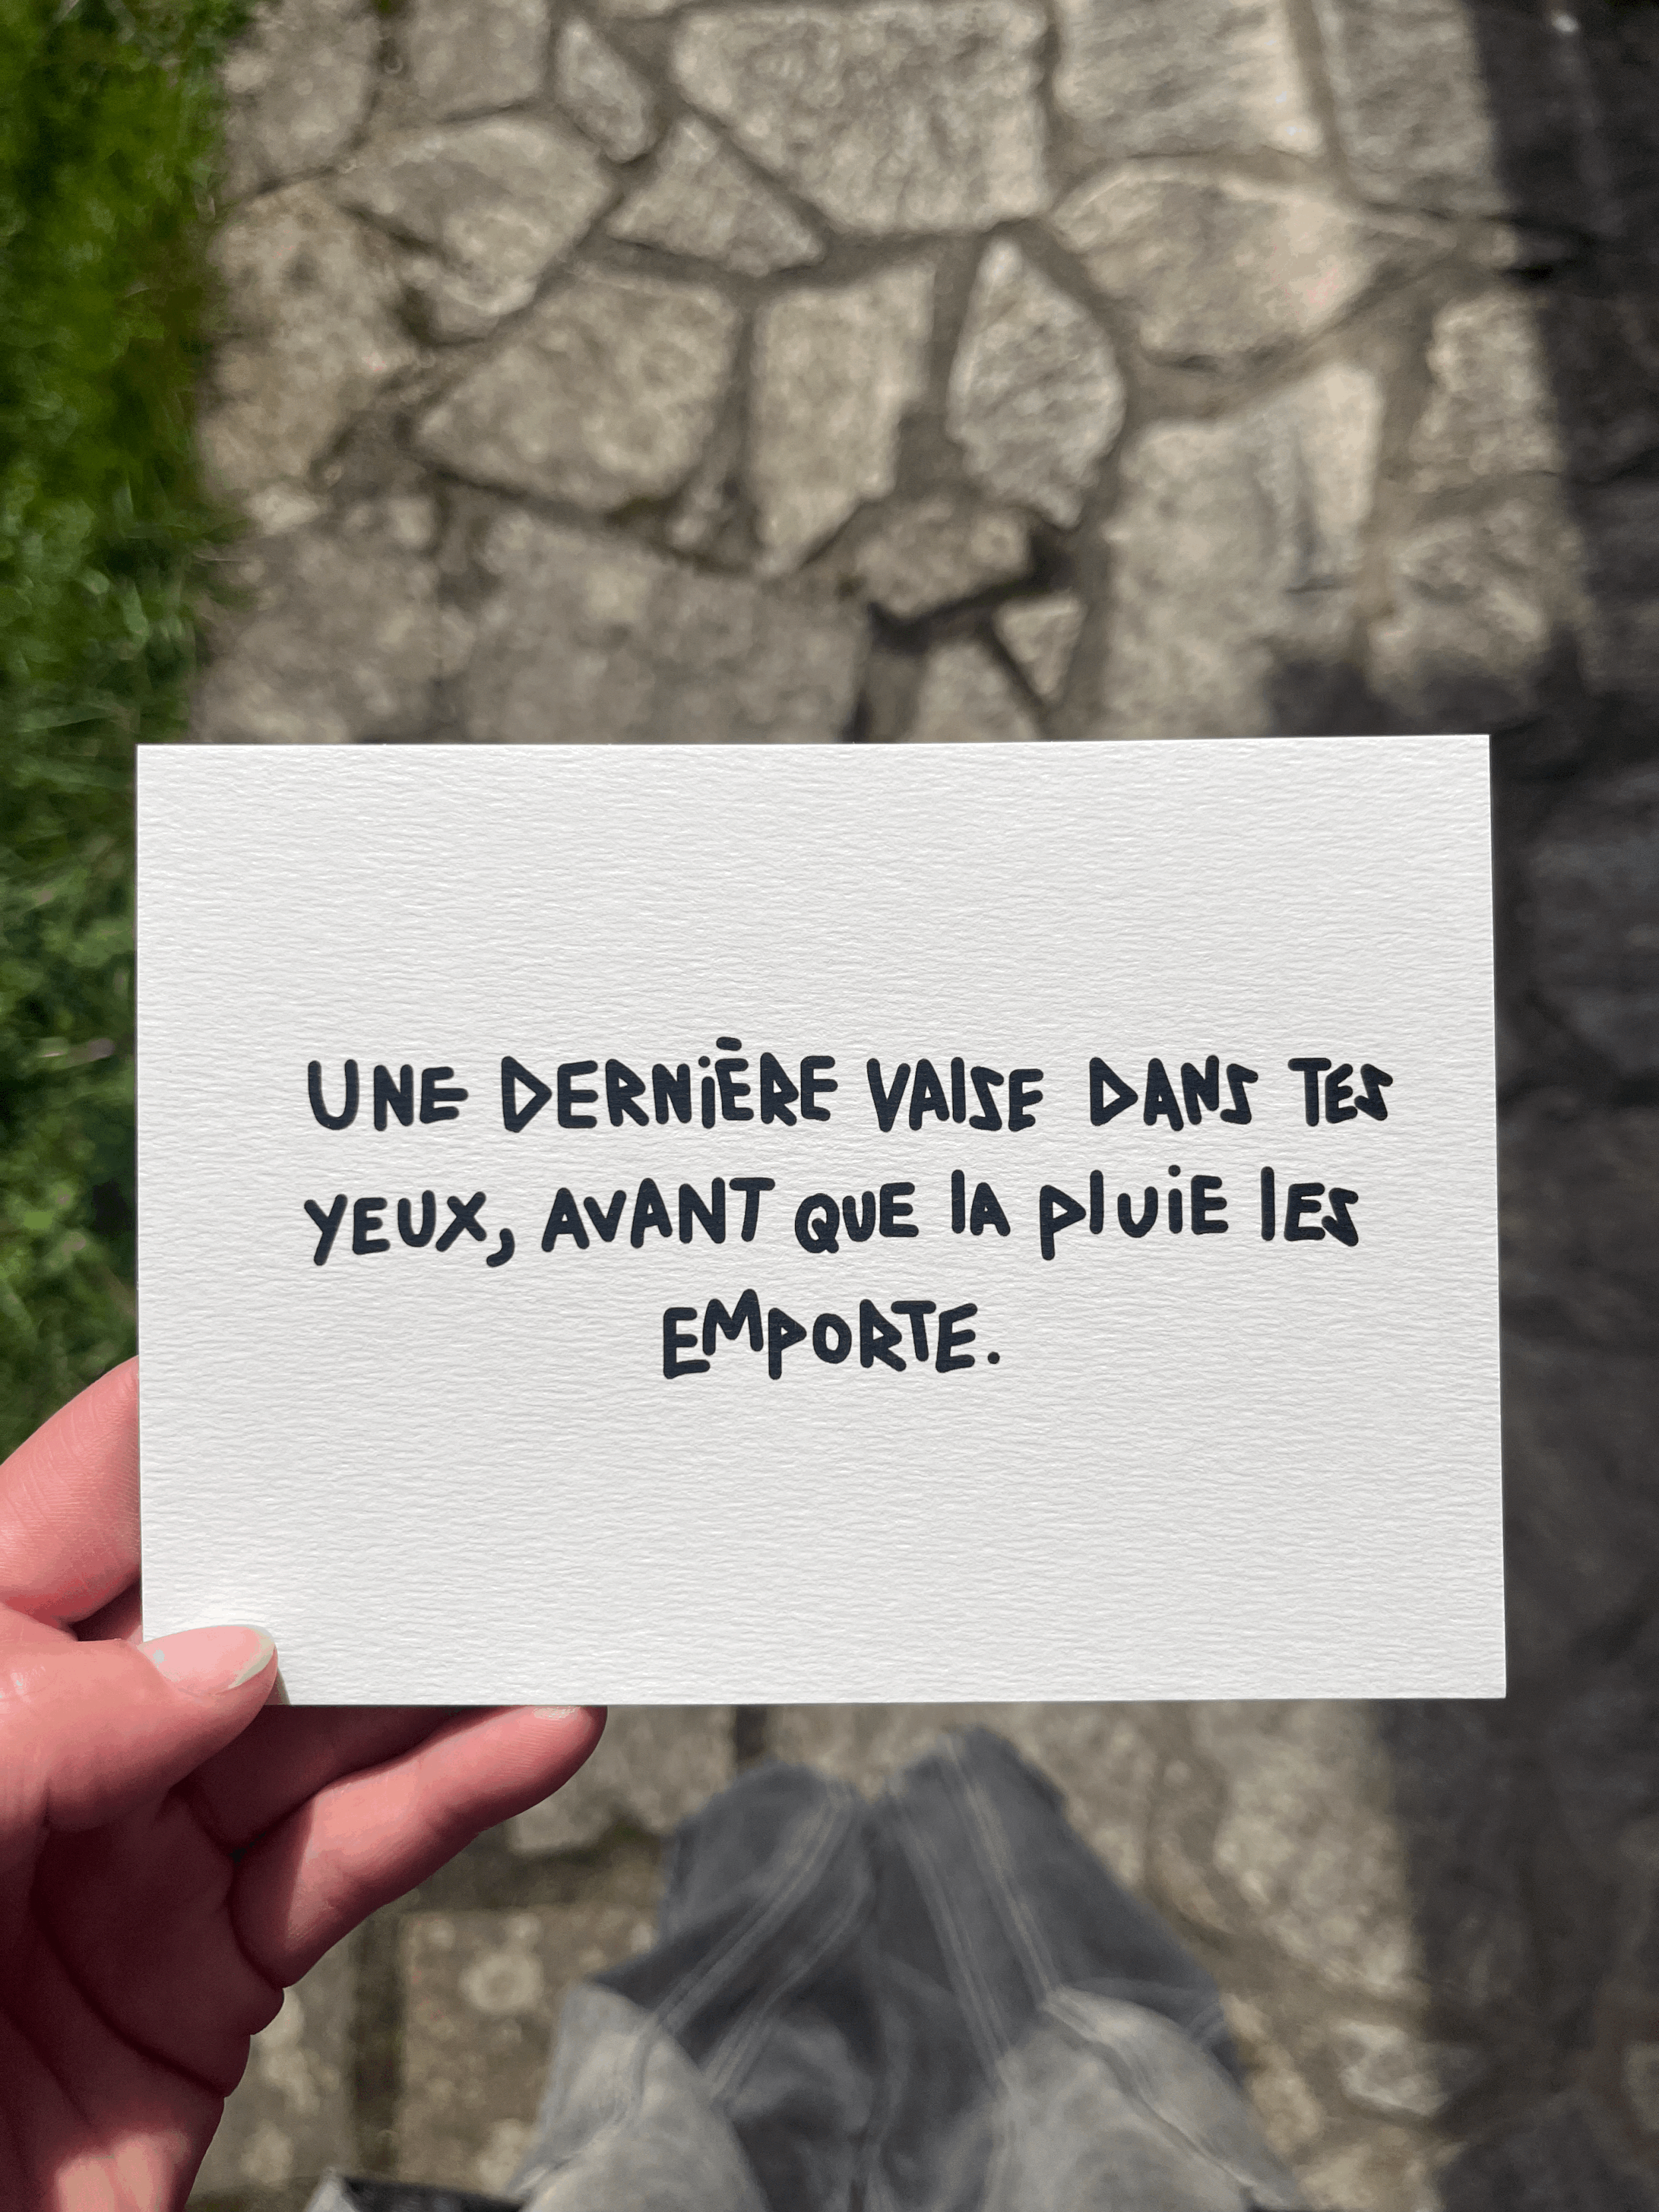 UNE DERNIÈRE VALSE DANS TES
YEUX, AVANT QUE LA PLUIE LES
EMPORTE.